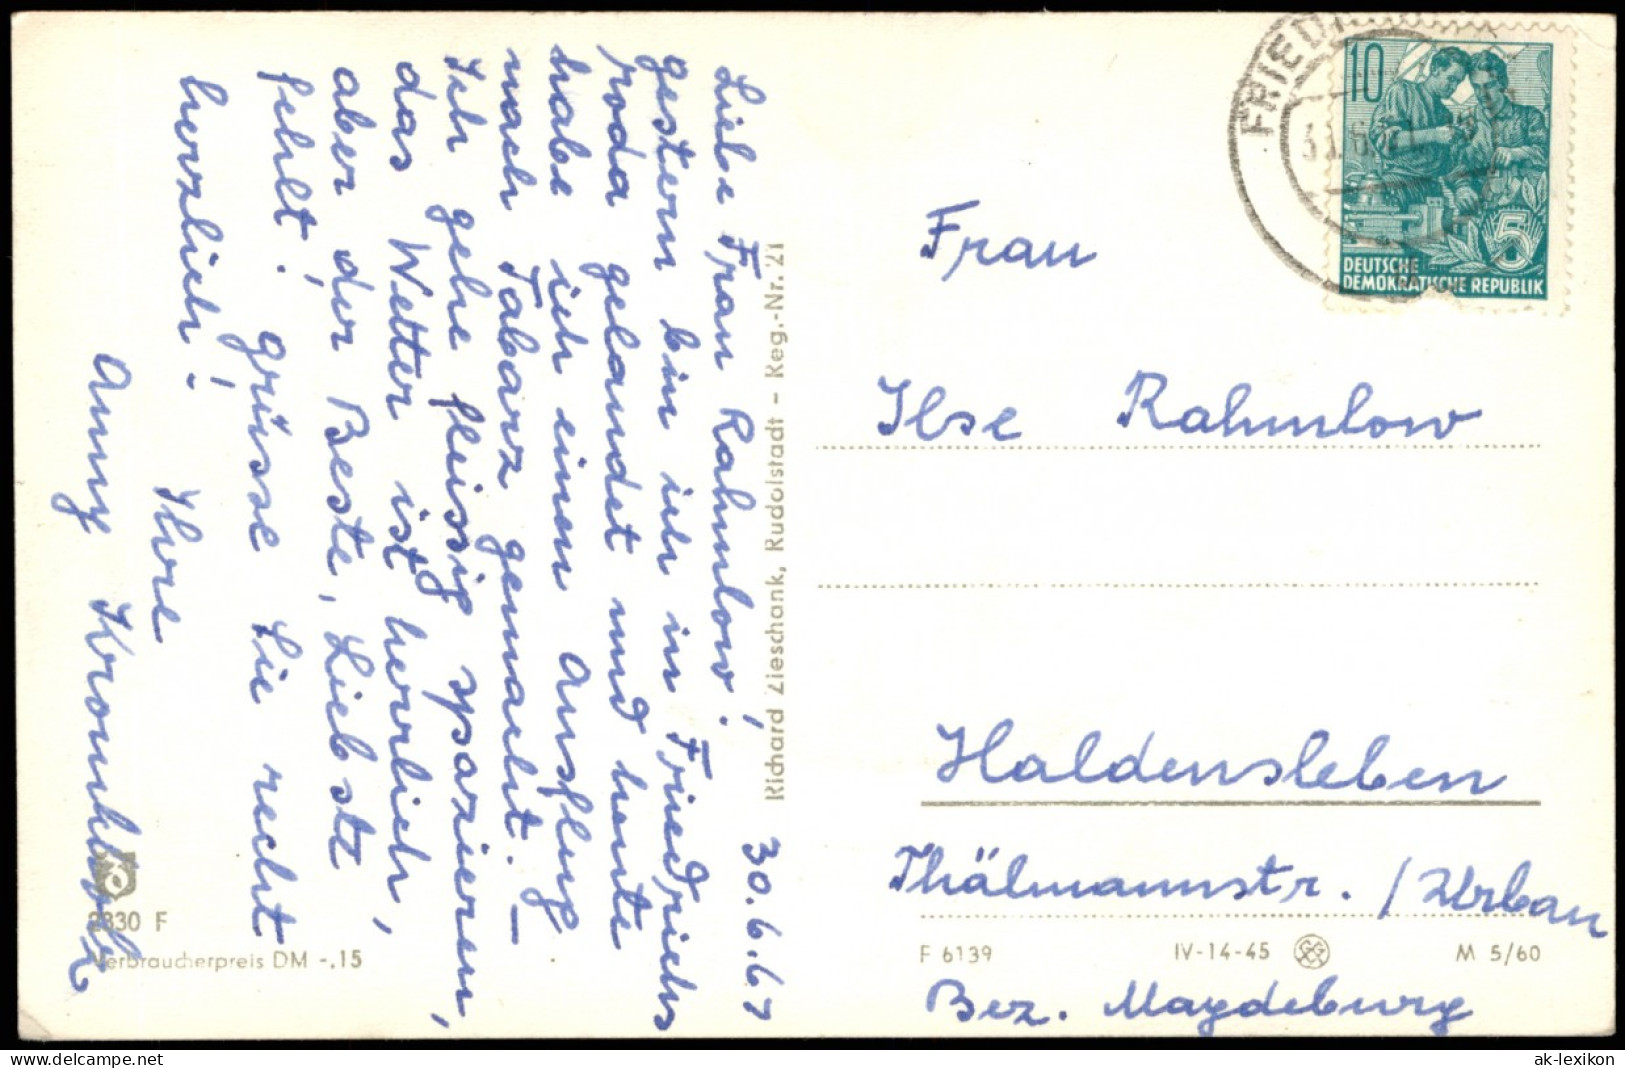 30.6.61
Liebe Frau Rahmlow!
gestern bin ich in Friedrichs
roda gelandet und heute
habe ich einen Ausflug
nach Tabarz gemacht. –
Ich gehe fleissig spazieren,
das Wetter ist herrlich,
aber der Beste, Liebste
fehlt! grüsse Sie recht
herzlich!
Ihre
Anny
2830 F
Verbraucherpreis DM -,15
Richard Zieschank, Rudolstadt – Reg.-Nr. 21
FRIED
10
5
DEUTSCHE
DEMOKRATISCHE REPUBLIK
Frau
Ilse Rahmlow
Haldensleben
Thälmannstr. / Urban
F 6139 IV-14-45 M 5/60
Bez. Magdeburg
www.delcampe.net
ak-lexikon